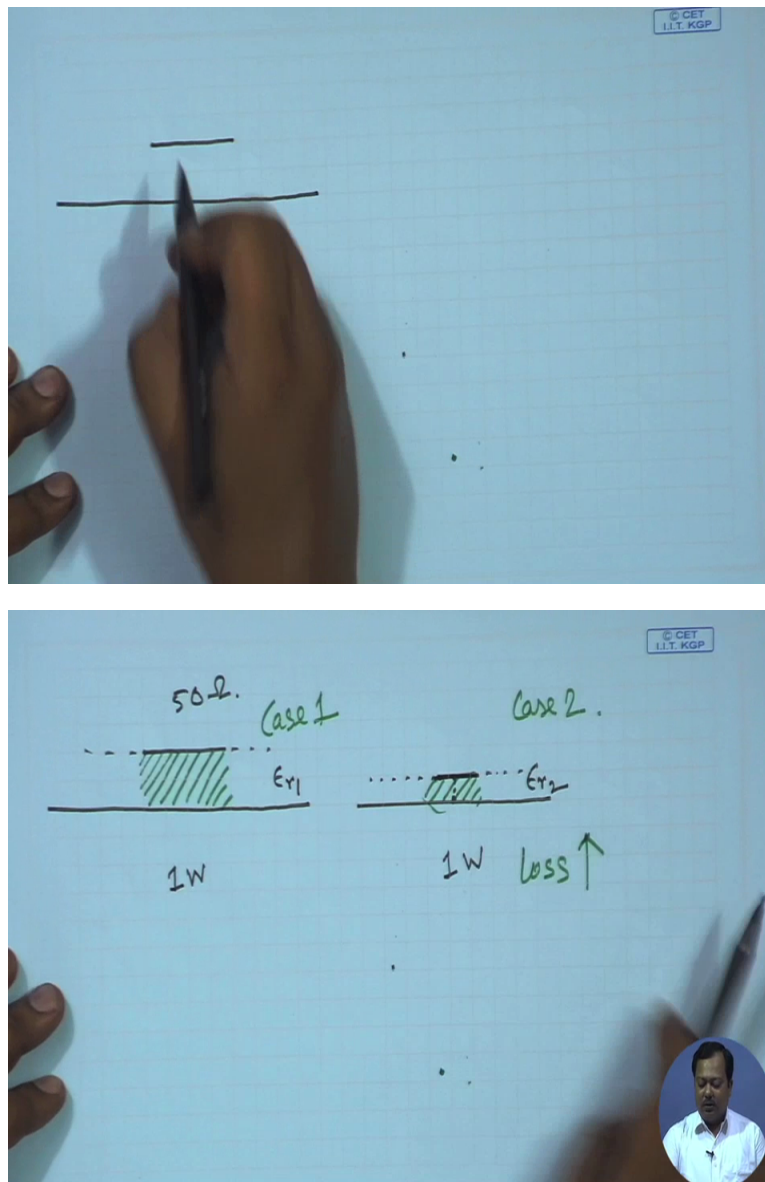 © CET
I.I.T. KGP
© CET
I.I.T. KGP
50Ω.
Case 1
Case 2.
Er1
Er2
1W
1W
Loss ↑